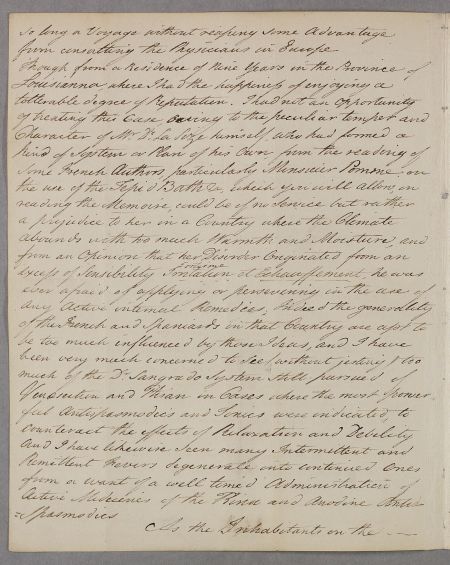 So long a Voyage without reaping some Advantage
from consulting the Physicians in Europe
Though from a Residence of Nine Years in the Province of
Louisianna, where I had the happiness of enjoying a
tollerable degree of Reputation. I had not an Opportunity
of treating this Case owing to the peculiar temper and
Character of Mr. De la himself, who had formed a
kind of System or Plan of his Own from the reading of
some French Authors, particularly Monsieur Pomme on
the use of the Tepid Bath &c, which you will allow, on
reading the Memoire, could be of no Service but rather
a prejudice to her in a Country where the Climate
abounds with too much Warmth and Moisture, and
from an Opinion that her Disorder Originated from an
excess of Sensibility Irritation & Echauffement, he was
ever afraid of applying or persevering in the use of
any Active internal Remedies, Indeed the generality
of the French and Spaniards in that Country are apt to
be too much influenced by those Ideas, and I have
been very much concerned to See, without jesting, too
much of the Dr. Sangrado System still pursued of
Venesection and Ptisan in Cases where the most power
ful Antispasmodics and Tonics were indicated, to
counteract the effects of Relaxation and Debility
And I have likewise Seen many Intermittent and
Remittent Fevers degenerate into continued Ones
from a want of a well timed Administration of
Active Medecines of the and Anodine Anti-
=Spasmodics
As the Inhabitants on the